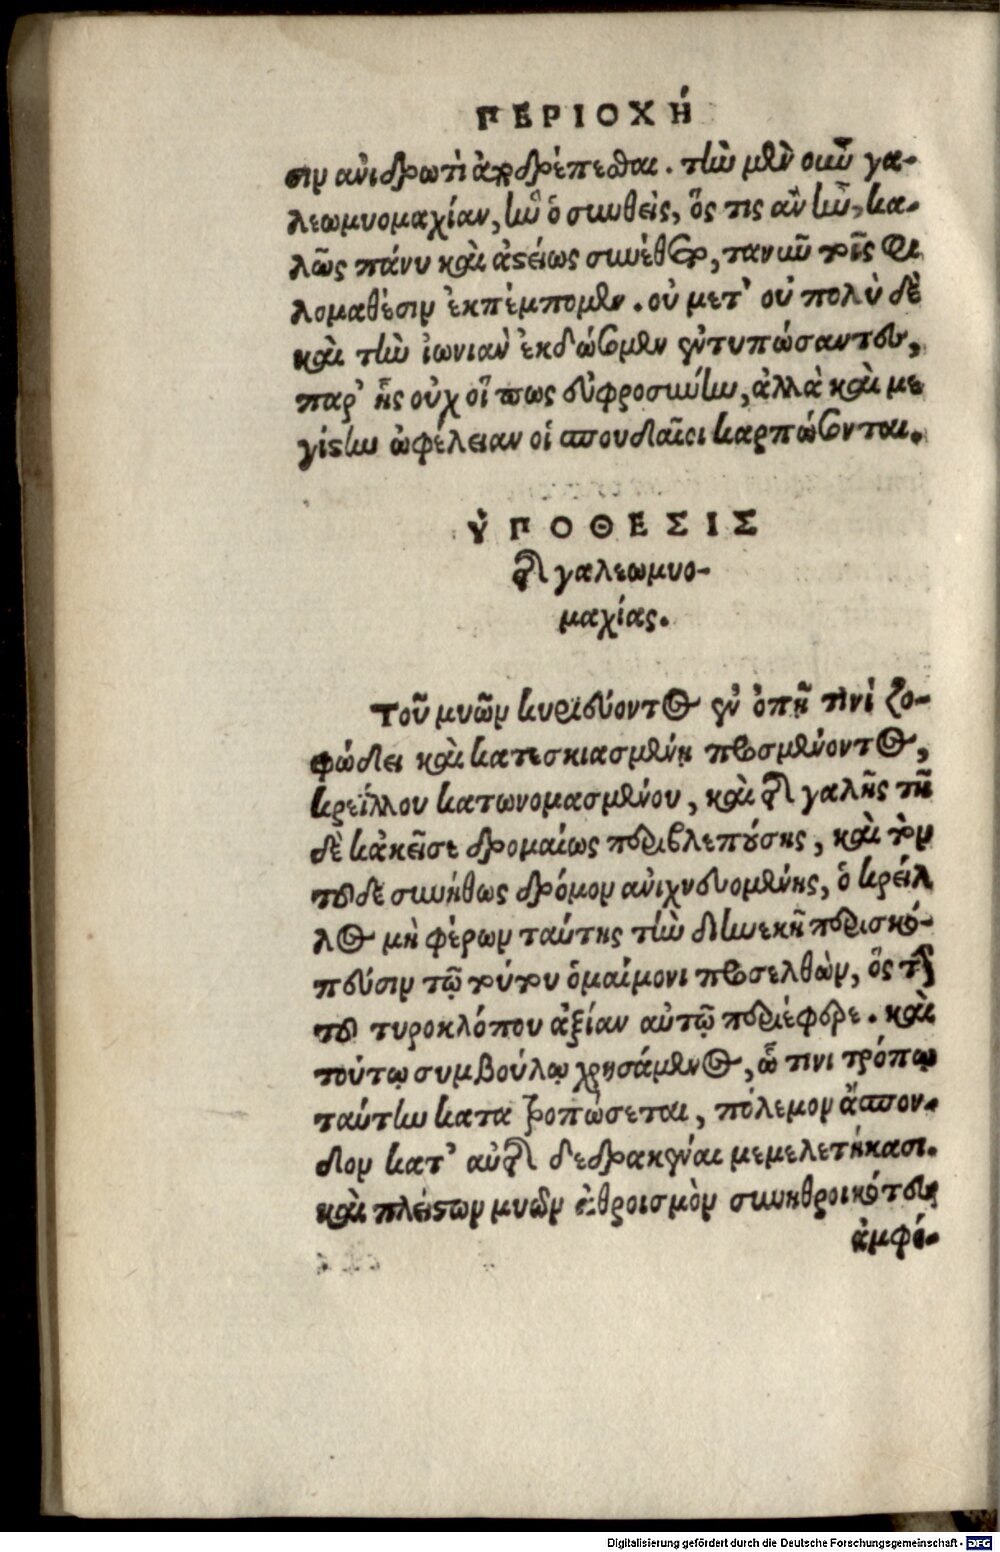 ΠΕΡΙΟΧΉ
σιν ἀνιδρωτὶ ἀποδρέπεσθαι. τὴν μὲν οὖν γα-
λεωμυομαχίαν, ἣν ὁ συνθεὶς, ὅς τις ἂν ἦν, κα-
λῶς πάνυ καὶ ἀστείως συνέθετο, τανῦν τοῖς φι
λομαθέσιν ἐκπέμπομεν. οὐ μετ' οὐ πολὺ δὲ
καὶ τὴν ἰωνιὰν ἐκδώσομεν ἐντυπώσαντες,
παρ' ἧς οὐχ οἵ πως εὐφροσύνην, ἀλλὰ καὶ με
γίστην ὠφέλειαν οἱ σπουδαῖοι καρπώσονται.
ὙΠΟΘΕΣΙΣ
τῆς γαλεωμυο-
μαχίας.
Τοῦ μυῶν κυριεύοντος ἐν ὀπῇ τινὶ ζο-
φώδει καὶ κατεσκιασμένῃ προσμένοντος,
κρεΐλλου κατωνομασμένου, καὶ τῆς γαλῆς τῇ
δὲ κἀκεῖσε δρομαίως περιβλεπούσης, καὶ τὸν
τοῦδε συνήθως δρόμον ἀνιχνευομένης, ὁ κρείλ
λος μὴ φέρων ταύτης τὴν διηνεκῆ περισκό-
πευσιν τῷ τούτου ὁμαίμονι προσελθὼν, ὃς τὴν
τοῦ τυροκλόπου ἀξίαν αὐτῷ περιέφερε. καὶ
τούτῳ συμβούλῳ χρησάμενος, ᾧ τινι τρόπῳ
ταύτην κατατροπώσεται, πόλεμον ἄσπον-
δον κατ' αὐτῆς δεδρακέναι μεμελετήκασι.
καὶ πλείστων μυῶν ἀθροισμὸν συνηθροικότες
ἀμφό-
Digitalisierung gefördert durch die Deutsche Forschungsgemeinschaft - DFG